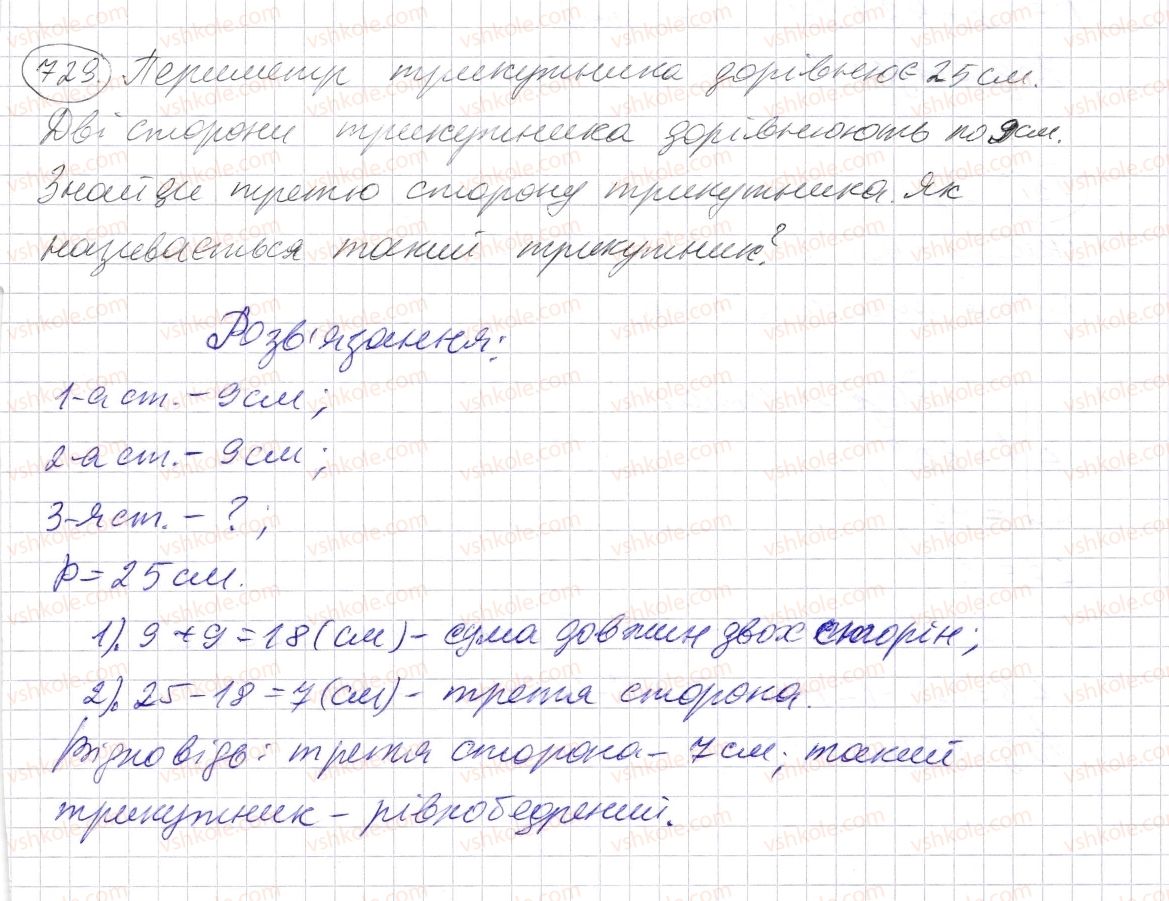 723. Периметр трикутника дорівнює 25 см.
Дві сторони трикутника дорівнюють по 9 см.
Знайди третю сторону трикутника. Як
називається такий трикутник?
Розв'язання:
1-а ст. – 9 см;
2-а ст. – 9 см;
3-я ст. – ?;
P = 25 см.
1). 9 + 9 = 18 (см) – сума довжин двох сторін;
2). 25 – 18 = 7 (см) – третя сторона.
Відповідь: третя сторона – 7 см; такий
трикутник – рівнобедрений.